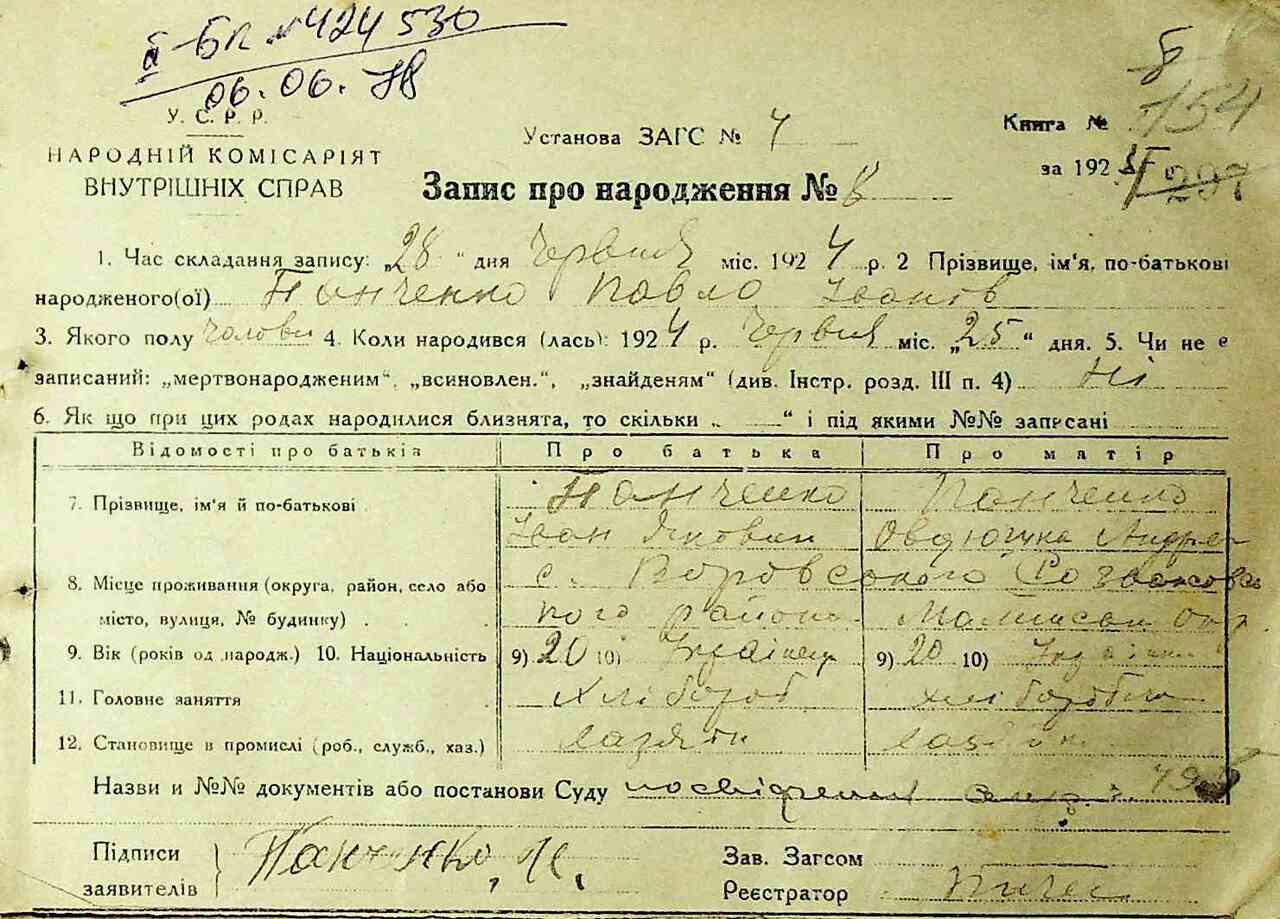 БП № 424 530
06.06.78
У. С. Р. Р.
НАРОДНІЙ КОМІСАРІЯТ
ВНУТРІШНІХ СПРАВ
Установа ЗАГС №
Книга № 154
за 192
Запис про народження №
1. Час складання запису: „28 “ дня Червня міс. 1924 р. 2 Прізвище, ім'я, по-батькові
народженого(ої) Панченко Павло Іванов
3. Якого полу чолови 4. Коли народився (лась): 1924 р. Червня міс. „25“ дня. 5. Чи не є
записаний: „мертвонародженим“, „всиновлен.“, „знайденям“ (див. Інстр. розд. III п. 4) Ні
6. Як що при цих родах народилися близнята, то скільки „ “ і під якими №№ записані
Відомості про батьків Про батька Про матір
7. Прізвище, ім'я й по-батькові Панченко Панченко
Іван Якович
8. Місце проживання (округа, район, село або с. Воровського
місто, вулиця, № будинку) . . кого району
9. Вік (років од народж.) 10. Національність 9) 20 10) Українець 9) 20 10) Українка
11. Головне заняття хлібороб хліборобка
12. Становище в промислі (роб., служб., хаз.)
Назви и №№ документів або постанови Суду посвідчення
Підписи
заявителів Панченко И.
Зав. Загсом
Реєстратор